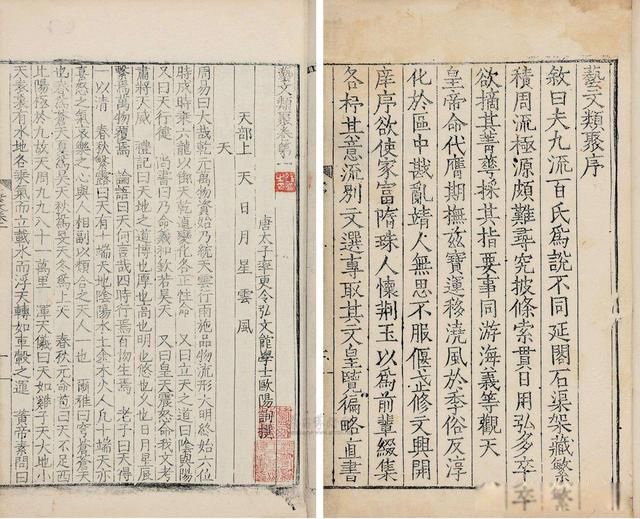 藝文類聚序
敘曰夫九流百氏爲說不同延閣石渠架藏繁
積周流極源頗難尋究披條索貫日用弘多卒
欲摘其菁華採其指要事同游海義等觀天
皇帝命代膺期撫茲寶運移澆風於季俗反淳
化於區中戡亂靖人無思不服偃武修文興開
庠序欲使家富隋珠人懷荊玉以爲前輩綴集
各抒其意流別文選專取其文皇覽徧略直書
藝文類聚卷第一
唐太子率更令弘文館學士歐陽詢撰
天部上 天 日 月 星 雲 風
天
周易曰大哉乾元萬物資始乃統天雲行雨施品物流形大明終始六位
時成時乘六龍以御天乾道變化各正性命 又曰立天之道曰陰與陽
又曰天行健 尚書曰乃命羲和欽若昊天 又曰皇天震怒命我文考
肅將天威 禮記曰天地之道博也厚也高也明也悠也久也日月星辰
繫焉萬物覆焉 論語曰天何言哉四時行焉百物生焉 老子曰天得
一以清 春秋繁露曰天有十端天地陰陽水土金木火人凡十端天亦
喜怒之氣哀樂之心與人相副以類合之天人一也 爾雅曰穹蒼蒼天
也春爲蒼天夏爲昊天秋爲旻天冬爲上天 春秋元命苞曰天不足西
北陽極於九故天周九九八十一萬里 渾天儀曰天如雞子天大地小
天表裏有水地各乘氣而立載水而浮天轉如車轂之運 黃帝素問曰
卒 繁